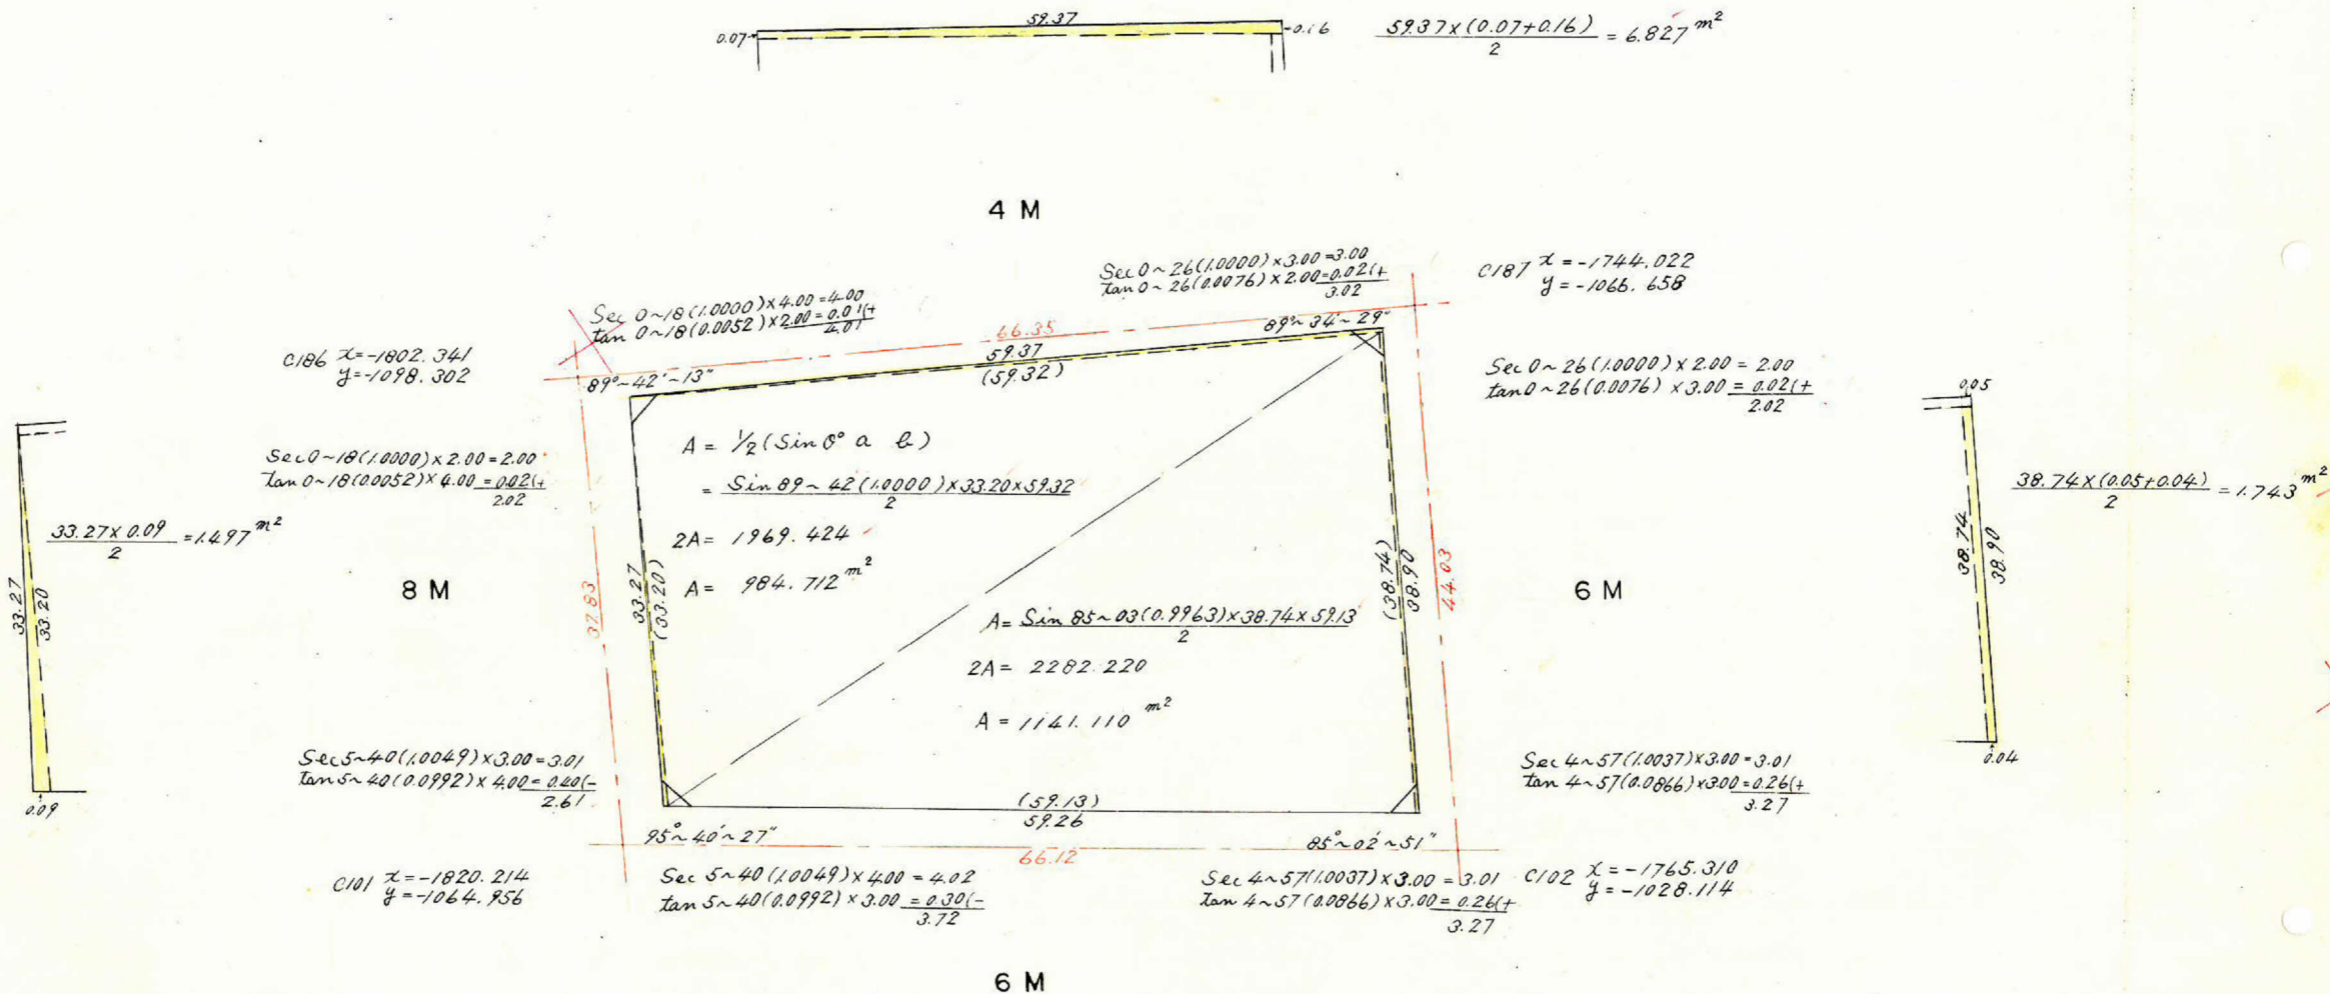 59.37
0.07
0.16
59.37×(0.07+0.16)
2
= 6.827 m²
4 M
Sec 0~26(1.0000)×3.00=3.00
tan 0~26(0.0076)×2.00=0.02(+
3.02
C187 x=-1744.022
y=-1066.658
Sec 0~18(1.0000)×4.00=4.00
tan 0~18(0.0052)×2.00=0.01(+
4.01
66.35
89°~34'~29"
59.37
(59.32)
C186 x=-1802.341
y=-1098.302
89°~42'~13"
Sec 0~26(1.0000)×2.00=2.00
tan 0~26(0.0076)×3.00=0.02(+
2.02
0.05
A = ½(Sin θ° a b)
Sec 0~18(1.0000)×2.00=2.00
tan 0~18(0.0052)×4.00=0.02(+
2.02
= Sin 89~42(1.0000)×33.20×59.32
2
33.27×0.09
2
=1.497 m²
38.74×(0.05+0.04)
2
=1.743 m²
2A= 1969.424
A= 984.712 m²
33.27
33.20
8 M
32.83
33.27
(33.20)
(38.74)
38.90
44.03
6 M
38.74
38.90
A= Sin 85~03(0.9963)×38.74×59.13
2
2A= 2282.220
A= 1141.110 m²
Sec 5~40(1.0049)×3.00=3.01
tan 5~40(0.0992)×4.00=0.40(-
2.61
Sec 4~57(1.0037)×3.00=3.01
tan 4~57(0.0866)×3.00=0.26(+
3.27
0.09
0.04
(59.13)
59.26
95°~40'~27"
66.12
85°~02'~51"
C101 x=-1820.214
y=-1064.956
Sec 5~40(1.0049)×4.00=4.02
tan 5~40(0.0992)×3.00=0.30(-
3.72
Sec 4~57(1.0037)×3.00=3.01
tan 4~57(0.0866)×3.00=0.26(+
3.27
C102 x=-1765.310
y=-1028.114
6 M